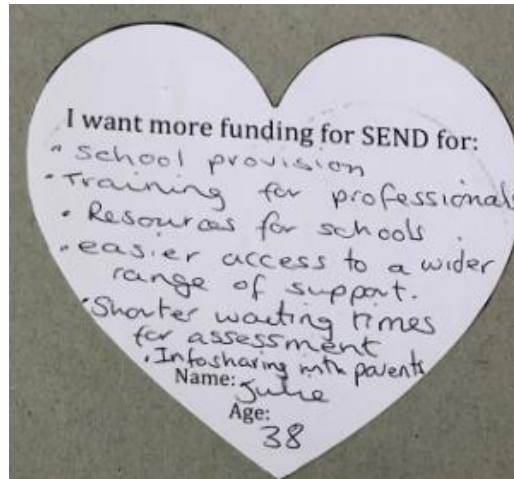 I want more funding for SEND for:
• School provision
• Training for professionals
• Resources for schools.
• easier access to a wider
range of support.
• Shorter waiting times
for assessment
• Infosharing with parents
Name: Julie
Age:
38